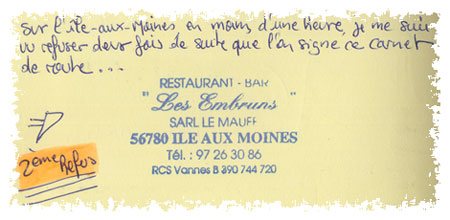 Sur l'île-aux-Moines en moins d'une heure, je me suis
vu refuser deux fois de suite que l'on signe ce carnet
de route...
RESTAURANT - BAR
"Les Embruns"
SARL LE MAUFF
56780 ILE AUX MOINES
Tél. : 97 26 30 86
RCS Vannes B 390 744 720
2ème Refus